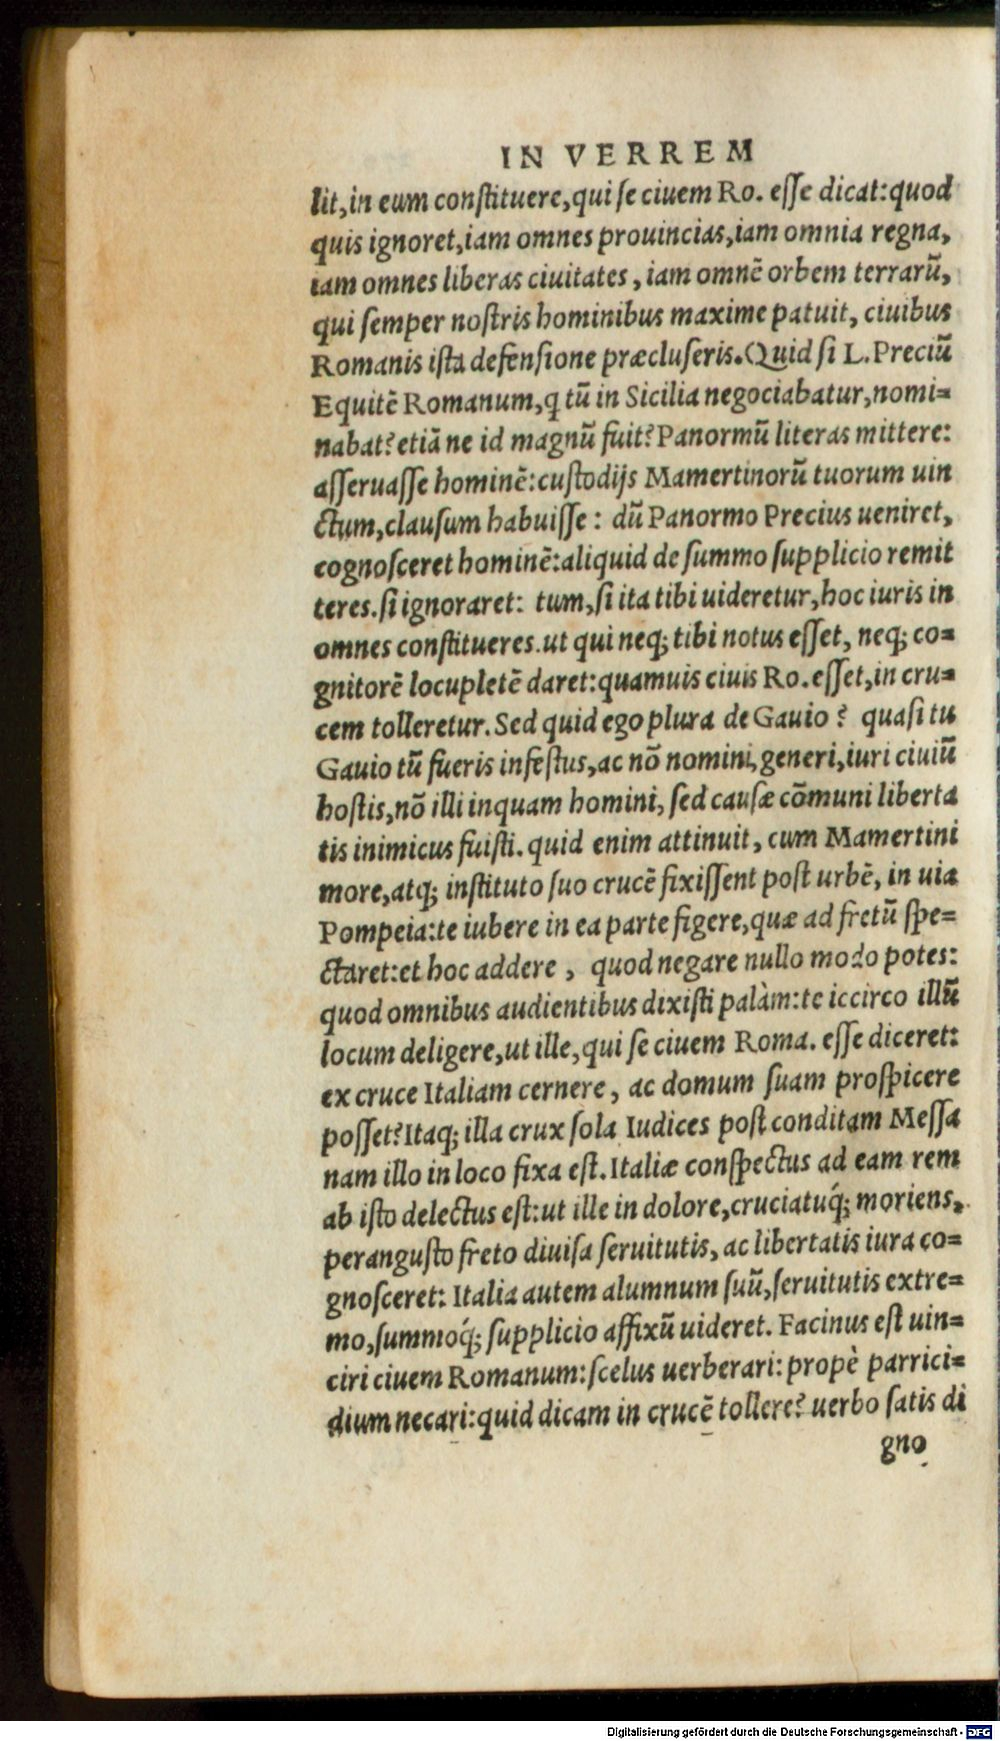 IN VERREM
lit,in eum constituere,qui se ciuem Ro. esse dicat:quod
quis ignoret,iam omnes prouincias,iam omnia regna,
iam omnes liberas ciuitates, iam omnẽ orbem terrarũ,
qui semper nostris hominibus maxime patuit, ciuibus
Romanis ista defensione præcluseris.Quid si L.Preciũ
Equitẽ Romanum,q tũ in Sicilia negociabatur,nomi=
nabat?etiã ne id magnũ fuit?Panormũ literas mittere:
asseruasse hominẽ:custodijs Mamertinorũ tuorum uin
ctum,clausum habuisse: dũ Panormo Precius ueniret,
cognosceret hominẽ:aliquid de summo supplicio remit
teres.si ignoraret: tum,si ita tibi uideretur,hoc iuris in
omnes constitueres.ut qui neq; tibi notus esset, neq; co=
gnitorẽ locupletẽ daret:quamuis ciuis Ro.esset,in cru=
cem tolleretur.Sed quid ego plura de Gauio? quasi tu
Gauio tũ fueris infestus,ac nõ nomini,generi,iuri ciuiũ
hostis,nõ illi inquam homini, sed causæ cõmuni liberta
tis inimicus fuisti.quid enim attinuit, cum Mamertini
more,atq; instituto suo crucẽ fixissent post urbẽ, in uia
Pompeia:te iubere in ea parte figere,quæ ad fretũ spe=
ctaret:et hoc addere, quod negare nullo modo potes:
quod omnibus audientibus dixisti palàm:te iccirco illũ
locum deligere,ut ille,qui se ciuem Roma. esse diceret:
ex cruce Italiam cernere, ac domum suam prospicere
posset?Itaq; illa crux sola Iudices post conditam Messa
nam illo in loco fixa est.Italiæ conspectus ad eam rem
ab isto delectus est:ut ille in dolore,cruciatuq́; moriens,
perangusto freto diuisa seruitutis, ac libertatis iura co=
gnosceret: Italia autem alumnum suũ,seruitutis extre=
mo,summoq́; supplicio affixũ uideret. Facinus est uin=
ciri ciuem Romanum:scelus uerberari:propè parrici=
dium necari:quid dicam in crucẽ tollere? uerbo satis di
gno
Digitalisierung gefördert durch die Deutsche Forschungsgemeinschaft - DFG